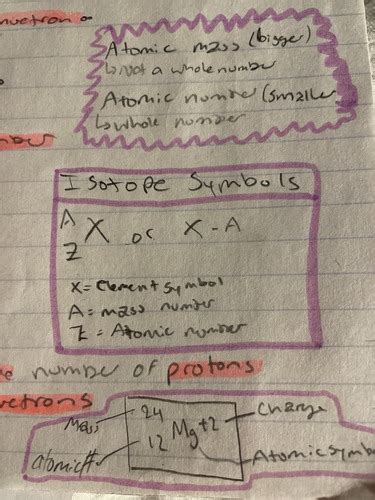 Atomic mass (bigger)
↳ Not a whole number
Atomic number (smaller
↳ whole number
Isotope Symbols
A
X or X-A
Z
X = Element symbol
A = mass number
Z = Atomic number
number of protons
Mass 24 Mg+2 Charge
atomic# 12 Atomic symbo